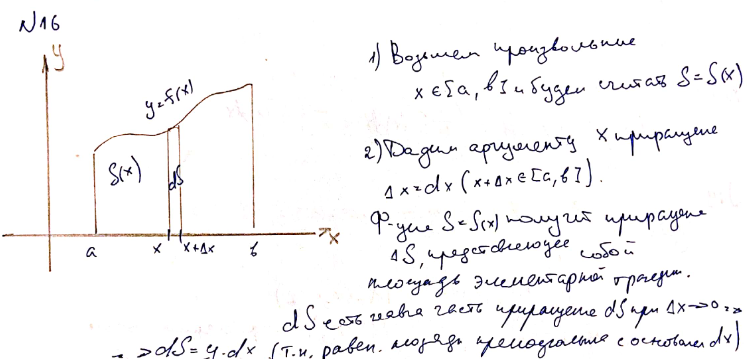 N16
y
y=f(x)
S(x)
dS
a
x
x+Δx
b
x
1) Возьмем произвольные
x ∈ [a, b] и будем считать S=S(x)
2) Дадим аргументу x приращение
Δx=dx (x+Δx ∈ [a, b]).
Ф-ция S=S(x) получит приращение
ΔS, представляющее собой
площадь элементарной трапеции.
dS есть главн часть приращение dS при Δx→0 =>
=> dS=y·dx (т.и. равен. площадь прямоугольника с основанием dx)